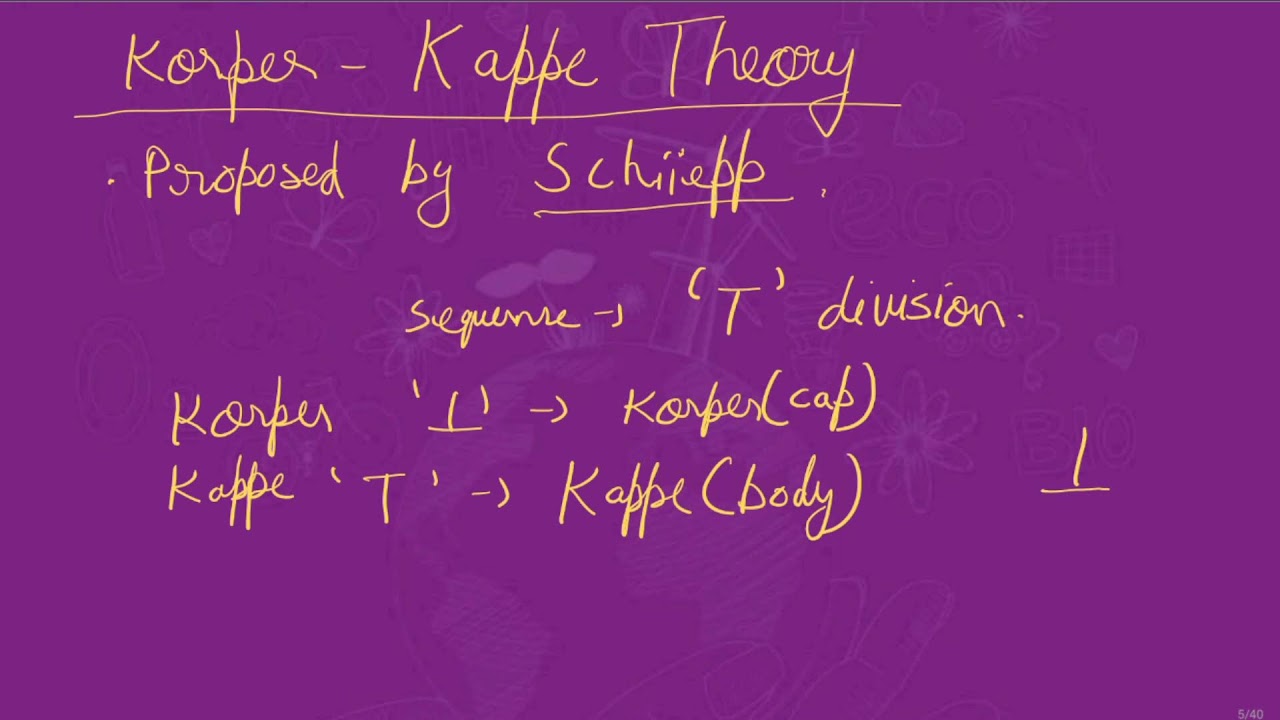 Korper - Kappe Theory
. Proposed by Schiiepp .
sequense → 'T' division.
Korper '⊥' → Korper(cap)
Kappe 'T' → Kappe(body)
⊥
eco
BIO
5/40